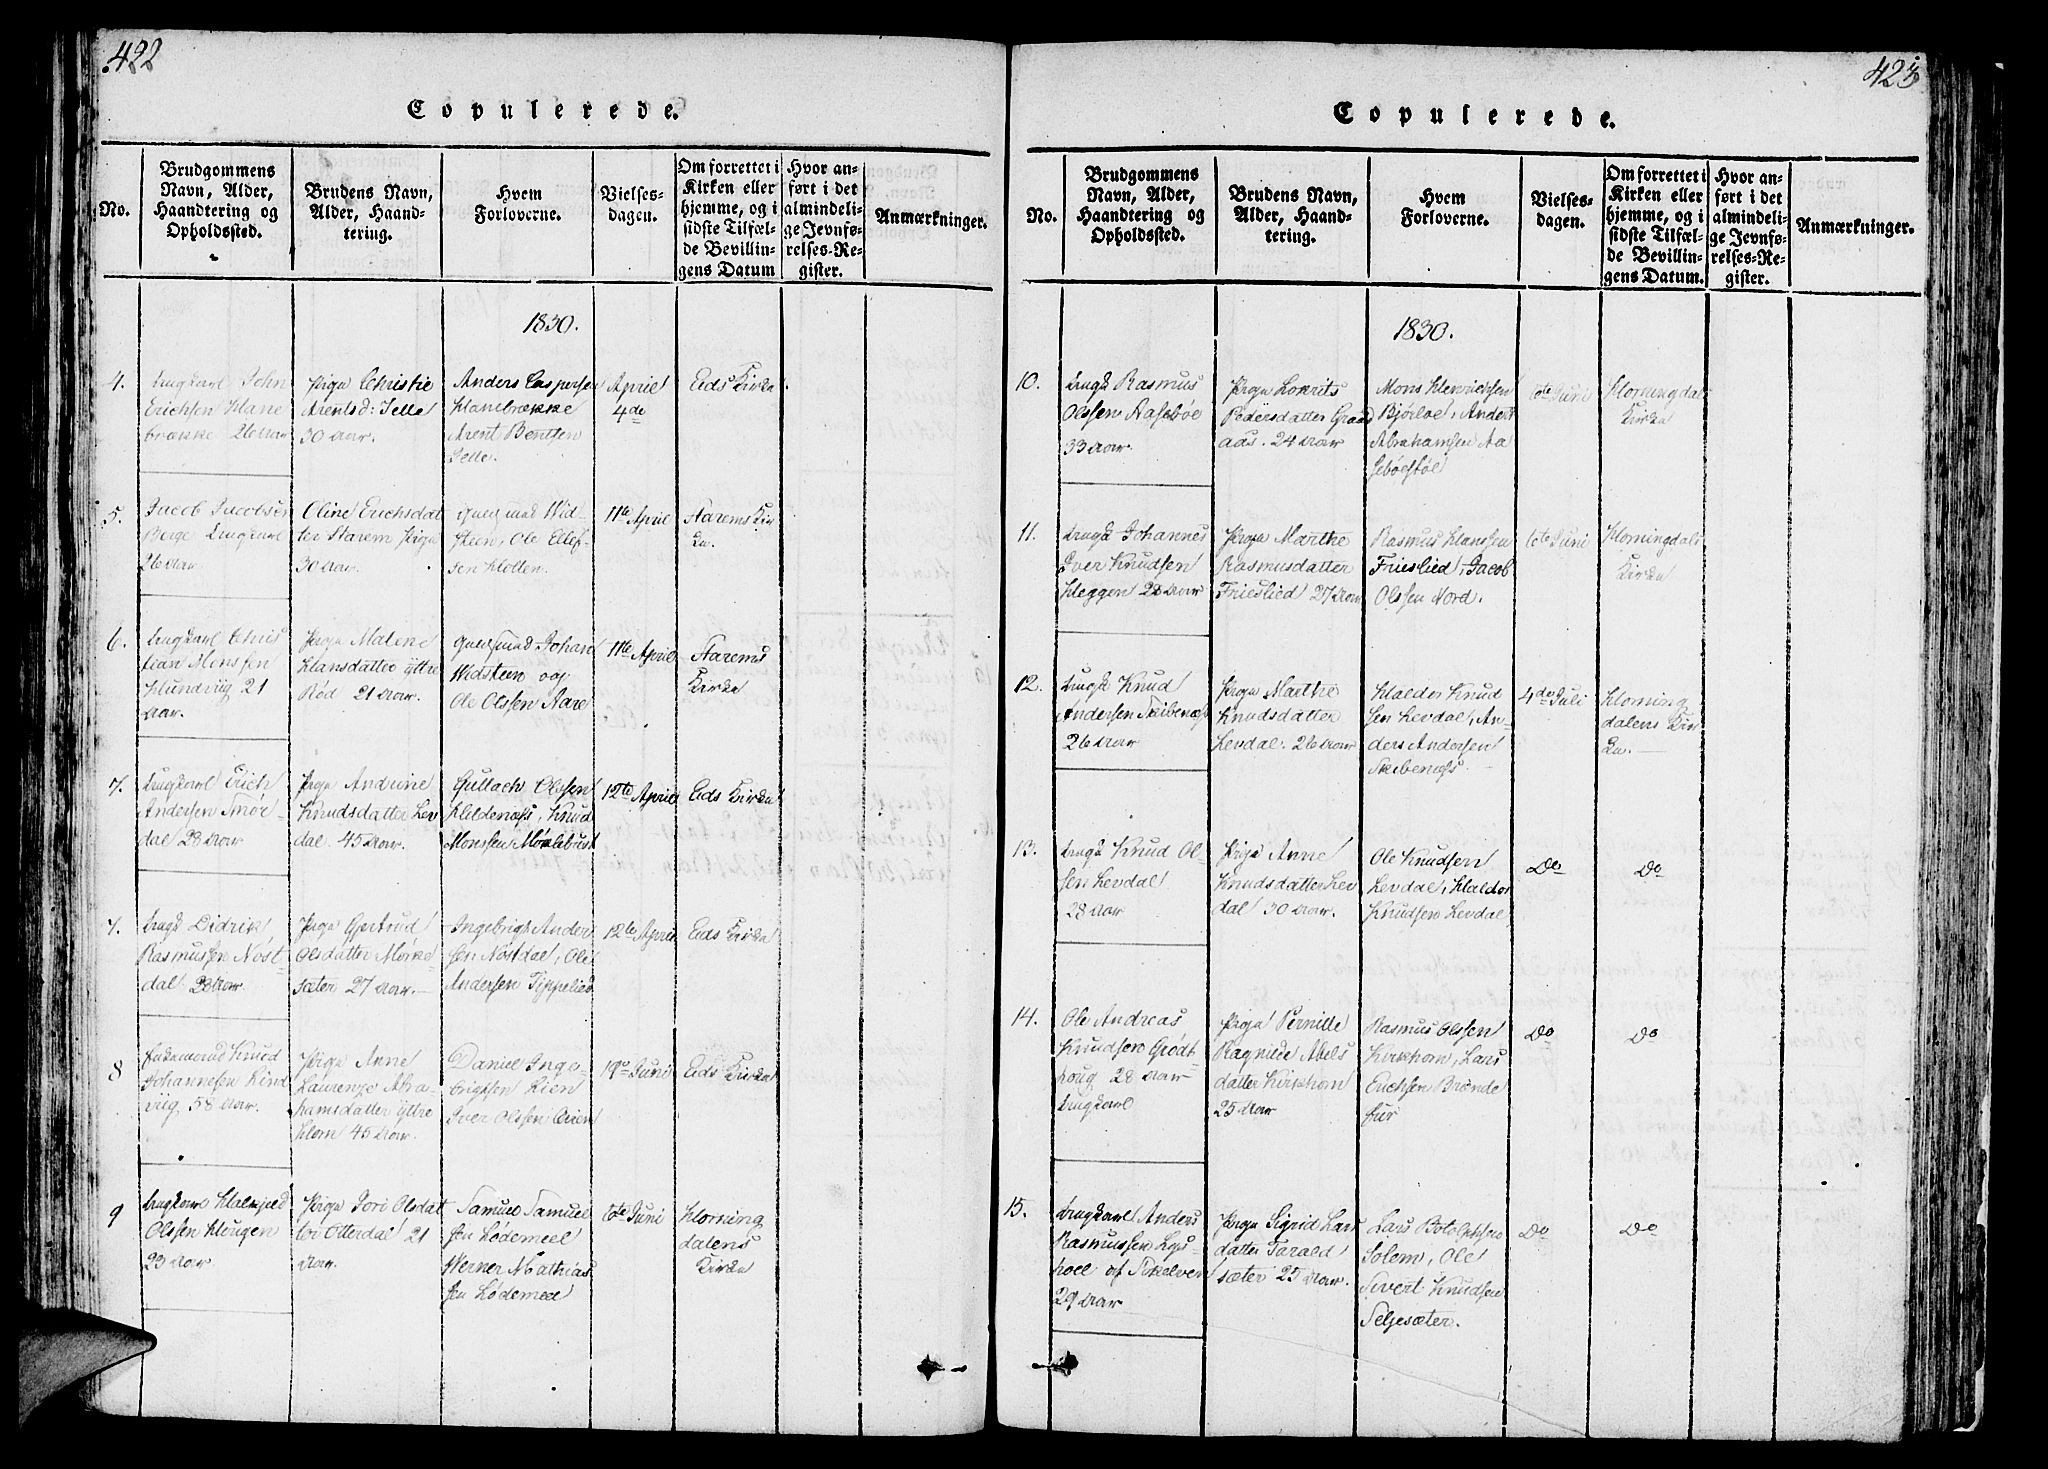 422
Copulerede.
No.
Brudgommens
Navn, Alder,
Haandtering og
Opholdssted.
Brudens Navn,
Alder, Haand-
tering.
Hvem
Forloverne.
Vielses-
dagen.
Om forrettet i
Kirken eller
hjemme, og i
sidste Tilfæl-
de Bevillin-
gens Datum
Hvor an-
ført i det
almindeli-
ge Jevnfø-
relses-Re-
gister.
Anmærkninger.
1830.
4.
Ungkarl John
Erichsen Hane
brække 26 Aar
Pige Christie
Arentsd: Lelle
30 Aar.
Anders Caspersen
Hanebrække
Arent Bentsen
Lelle.
April
4de
Eids Kirke
5.
Jacob Jacobsen
Berge Ungkarl
26 Aar
Oline Erichsdat
ter Starem Pige
30 Aar.
Wid-
steen, Ole Ellef-
sen Hotten.
11te April
Starems Kir
ke.
6.
Ungkarl Chris
tian Monsen
Hundviig 21
Aar.
Pige Malene
Hansdatter Yttre
Rød 21 Aar.
Guldsmed Johan
Widsteen og
Ole Olssen Aare
11te April
Starems
Kirke
7.
Ungkarl Erich
Andersen Smør-
dal 28 Aar
Pige Andrine
Knudsdatter Lev
dal. 45 Aar.
Gullach Olssen
Hildenæss, Knud
Monssen Møklebust
12te April
Eids Kirke
7.
Ungk Didrik
Rasmussen Nøst-
dal 28 Aar
Pige Gertrud
Olsdatter Mørke-
sæter 27 Aar.
Ingebrigt Ander
sen Nøstdal, Ole
Andersen Tippelied
12te April
Eids Kirke
8
Enkemand Knud
Johannesen Kind
viig, 58 Aar.
Pige Anne
Laurenze Abra-
hamsdatter Yttre
Hom 45 Aar.
Daniel Inge-
brigtsen Lien
Iver Olssen Lien
19de Juni
Eids Kirke
9
Ungkarl Halkjeld
Olssen Hougen
23 Aar
Pige Jori Olsdat
ter Otterdal 21
Aar.
Samuel Samuel
sen Lødemeel
Werner Mathias
sen Lødemeel
6te Juni
Horning
dalens
Kirke
423
Copulerede.
No.
Brudgommens
Navn, Alder,
Haandtering og
Opholdssted.
Brudens Navn,
Alder, Haand-
tering.
Hvem
Forloverne.
Vielses-
dagen.
Om forrettet i
Kirken eller
hjemme, og i
sidste Tilfæl-
de Bevillin-
gens Datum.
Hvor an-
ført i det
almindeli-
ge Jevnfø-
relses-Re-
gister.
Anmærkninger.
1830.
10.
Ungk Rasmus
Olssen Aasebøe
33 Aar.
Pige Lokrits
Pedersdatter Graad
aas. 24 Aar.
Mons Henrichsen
Bjørloe, Anders
Abrahamsen Aa
sebøestøl
6te Juni
Horningdals
Kirke
11.
Ungk Johannes
Iver Knudsen
Heggen 28 Aar
Pige Marthe
Rasmusdatter
Frieslied 27 Aar
Rasmus Hanssen
Frieslied, Jacob
Olssen Nord.
6te Juni
Horningdals
Kirke
12.
Ungk Knud
Andersen Skibenæss
26 Aar
Pige Marthe
Knudsdatter
Levdal. 26 Aar
Haldor Knud
sen Levdal, An-
ders Andersen
Skibenæss.
4de Juli
Horning
dalens Kir
ke.
13.
Ungk Knud Ol-
sen Levdal
28 Aar
Pige Anne
Knudsdatter Lev
dal 30 Aar.
Ole Knudsen
Levdal, Haldor
Knudsen Levdal
Do
Do
14.
Ole Andreas
Knudsen Grødt
houg 28 Aar
Ungkarl
Pige Pernille
Ragnilde Abels
datter Kirkhorn
25 Aar
Rasmus Olssen
Kirkhorn, Lars
Erichsen Brønde
fur
Do
Do
15.
Ungkarl Anders
Rasmussen Lys-
hoel af Skelven
29 Aar
Pige Sigrid Lars
datter Tarald
sæter 25 Aar.
Lars Botolphsen
Solem, Ole
Sivert Knudsen
Seljesæter.
Do
Do